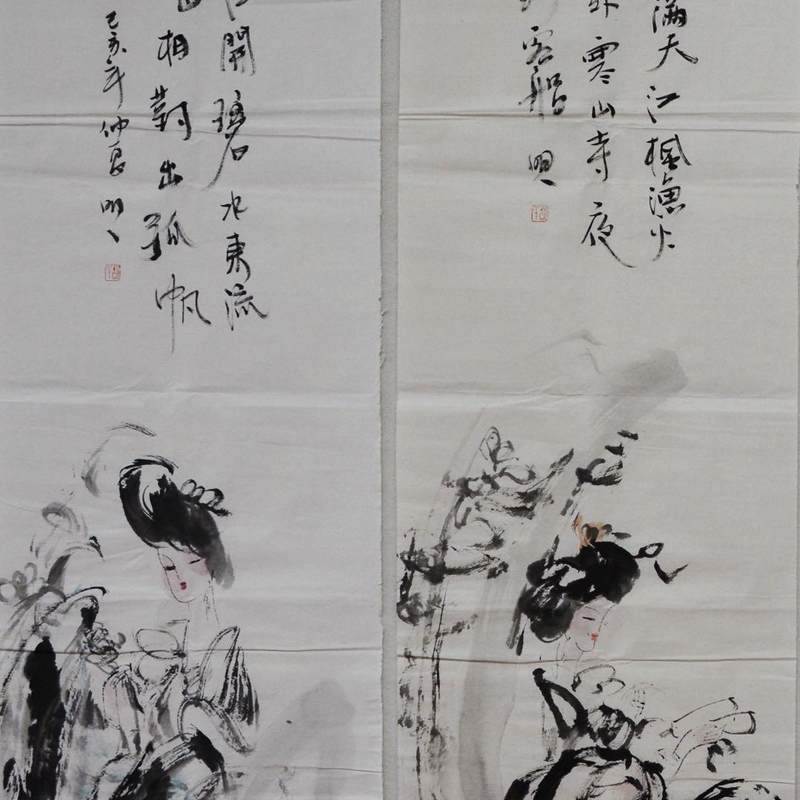 滿天江楓漁火
外寒山寺夜
到客船 明
江開碧水東流
山相對出孤帆
己亥年仲夏 明